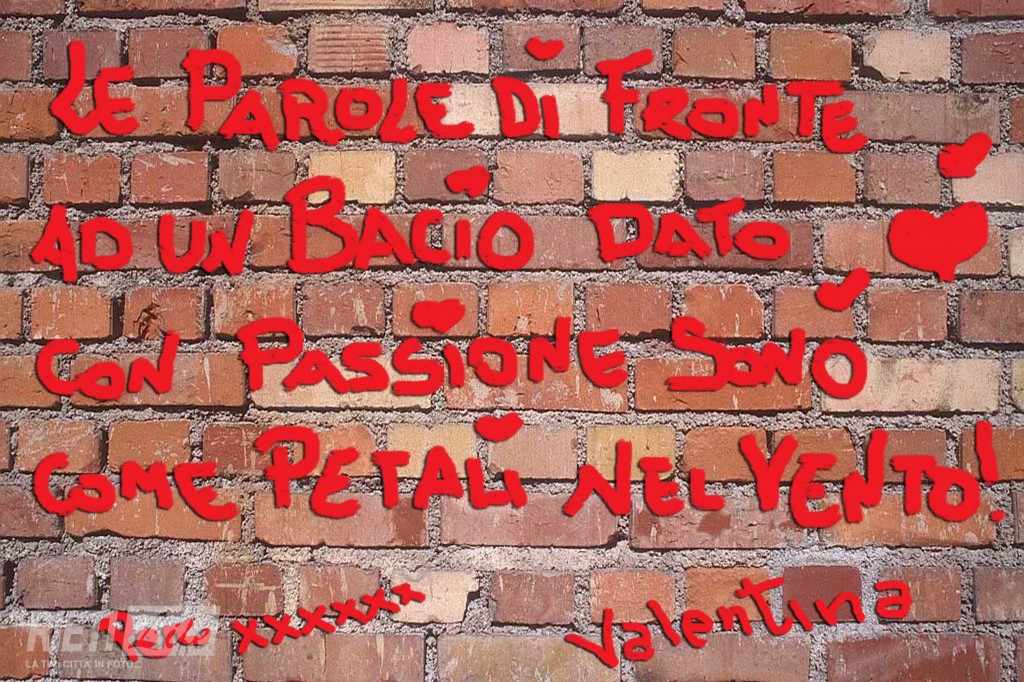 Le Parole di Fronte
ad un Bacio dato
con Passione sono
come Petali nel Vento!
xxxxxx Valentina
LA TUA CITTÀ IN FOTO